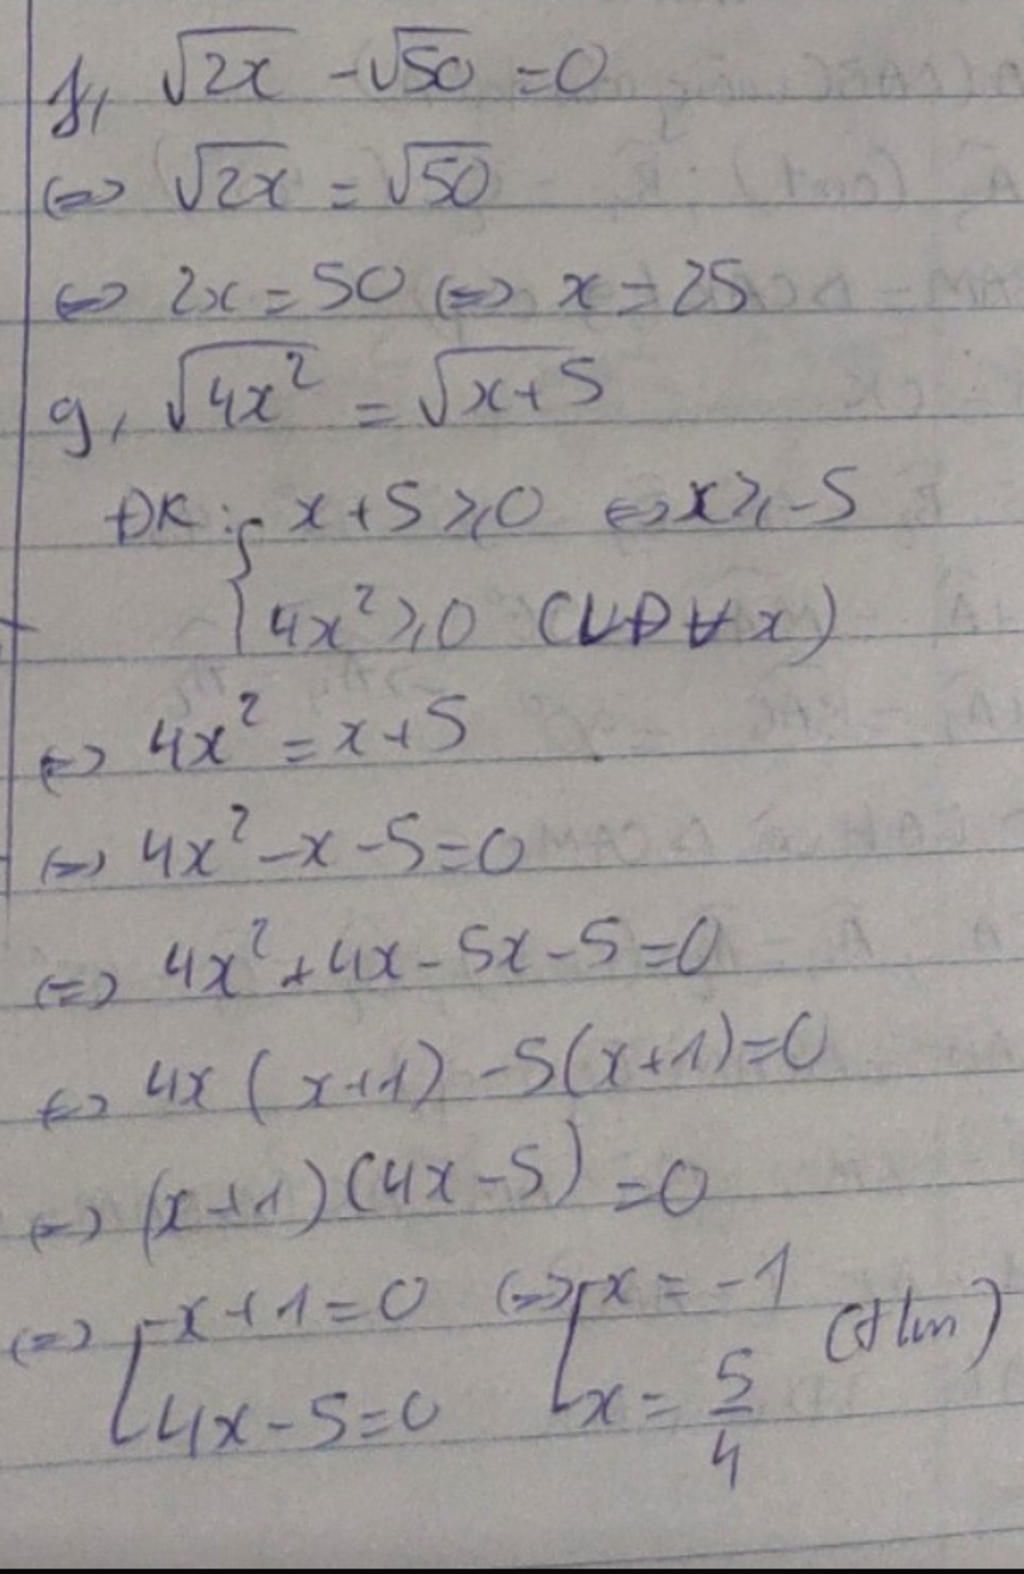 f, √2x - √50 = 0
⇔ √2x = √50
⇔ 2x = 50 ⇔ x = 25
g, √4x² = √x+5
ĐK: { x+5 ⩾ 0 ⇔ x ⩾ -5
4x² ⩾ 0 (LĐ ∀ x)
⇔ 4x² = x+5
⇔ 4x² - x - 5 = 0
⇔ 4x² + 4x - 5x - 5 = 0
⇔ 4x (x+1) - 5(x+1) = 0
⇔ (x+1)(4x-5) = 0
⇔ [ x+1 = 0 ⇔ [ x = -1
4x - 5 = 0 x = 5/4 (tm)